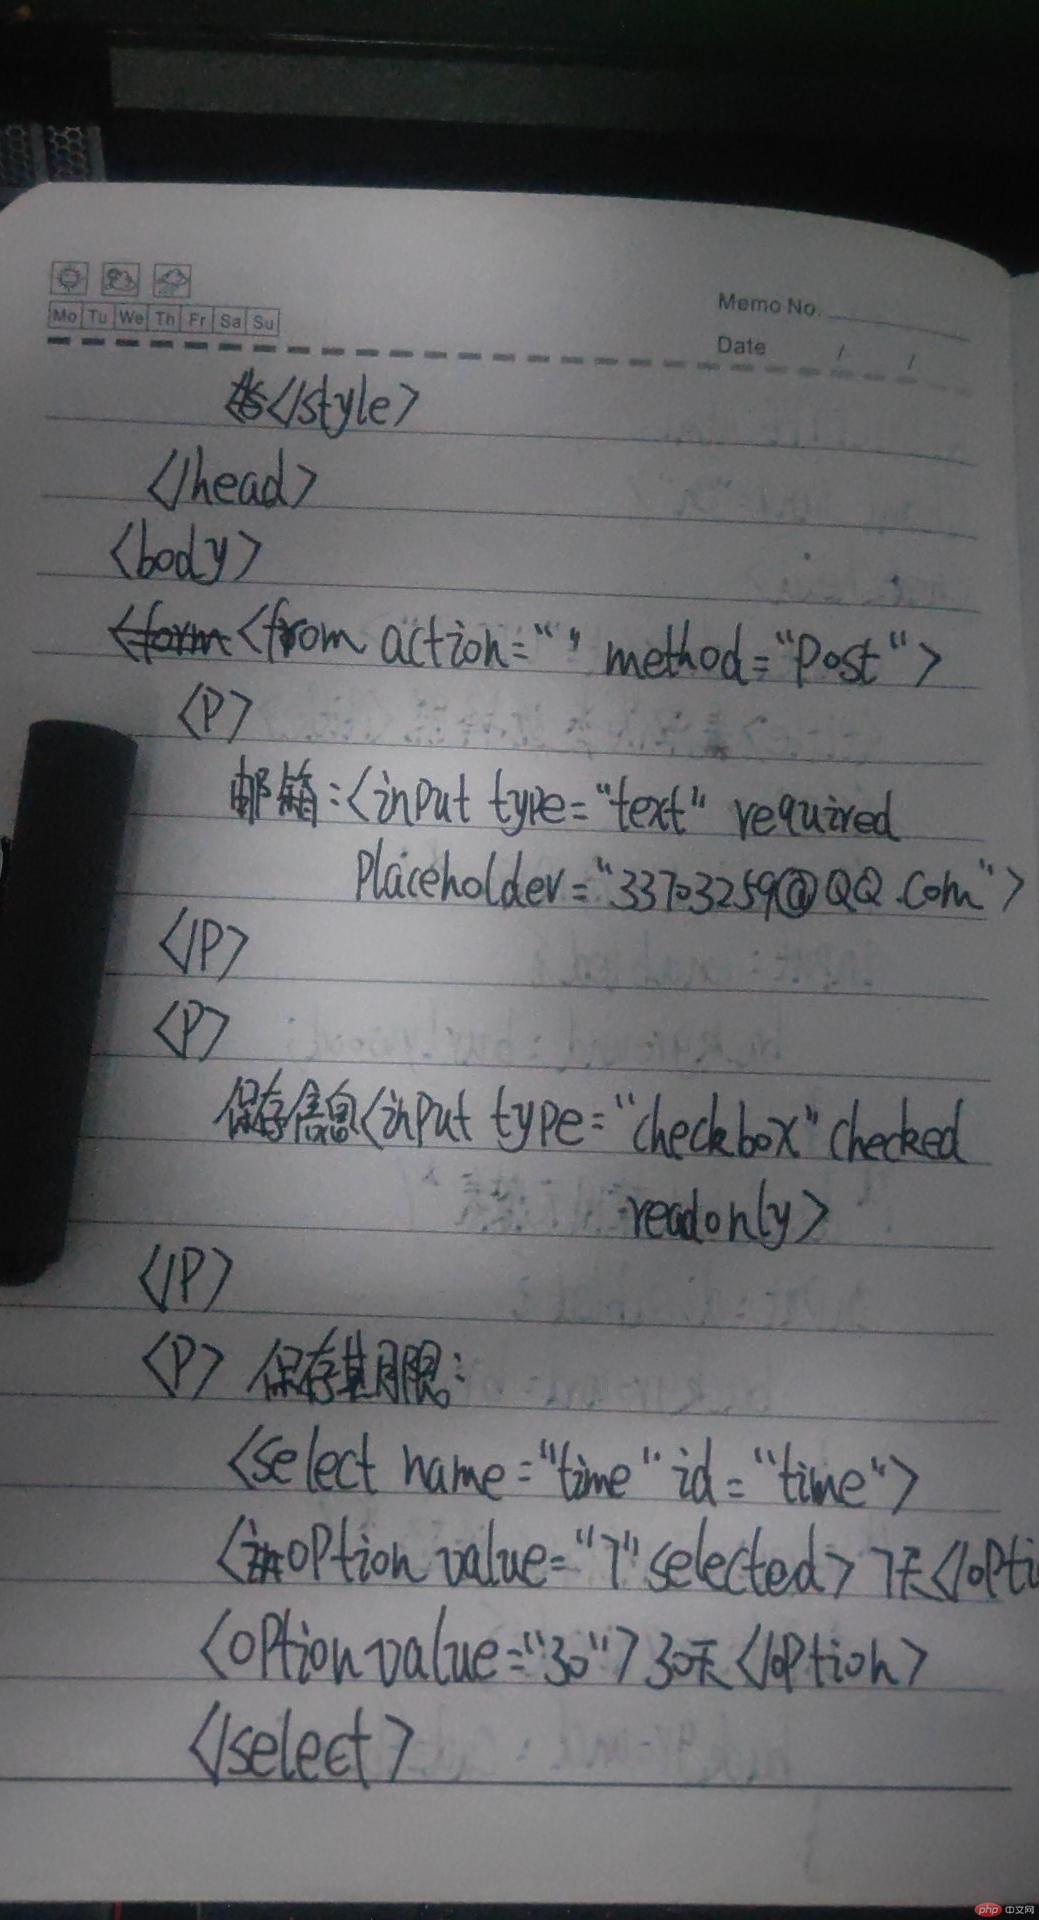 Mo Tu We Th Fr Sa Su
Memo No.
Date / /
</style>
</head>
<body>
<form <from action="" method="Post">
<P>
邮箱:<input type="text" required
Placeholder="33703259@QQ.Com">
</P>
<P>
保存信息<input type="checkbox" checked
readonly>
</P>
<P> 保存期限:
<select name="time" id="time">
<option value="7" selected>7天</opti
<option value="30">30天</option>
</select>
php 中文网